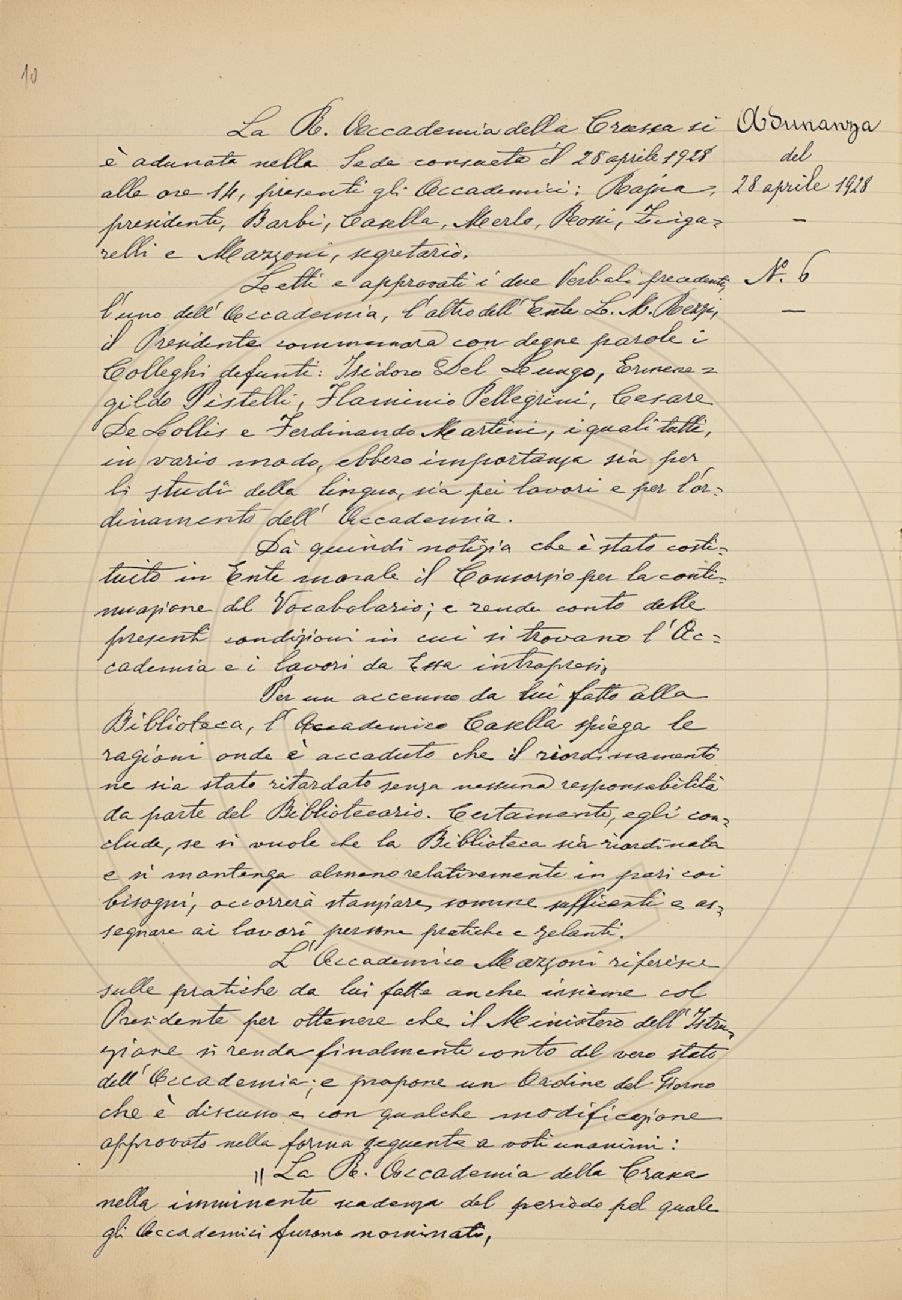 10
La R. Accademia della Crusca si
è adunata nella Sede consueta il 28 aprile 1928
alle ore 14, presenti gli Accademici: Rajna,
presidente, Barbi, Casella, Merlo, Rossi, Zinga=
relli e Mazzoni, segretario.
Adunanza
del
28 aprile 1928
–
N. 6
–
Letti e approvati i due Verbali precedenti,
l'uno dell'Accademia, l'altro dell'Ente L. M. Rezzi,
il Presidente commemora con degne parole i
Colleghi defunti: Isidoro Del Lungo, Ermene=
gildo Pistelli, Flaminio Pellegrini, Cesare
De Lollis e Ferdinando Martini, i quali tutti,
in vario modo, ebbero importanza sia per
li studî della lingua, sia pei lavori e per l'or=
dinamento dell'Accademia.
Dà quindi notizia che è stato costi=
tuito in Ente morale il Consorzio per la conti=
nuazione del Vocabolario; e rende conto delle
presenti condizioni in cui si trovano l'Ac=
cademia e i lavori da Essa intrapresi.
Per un accenno da lui fatto alla
Biblioteca, l'Accademico Casella spiega le
ragioni onde è accaduto che il riordinamento
ne sia stato ritardato senza nessuna responsabilità
da parte del Bibliotecario. Certamente, egli con=
clude, se si vuole che la Biblioteca sia riordinata
e si mantenga almeno relativamente in pari coi
bisogni, occorrerà stanziare somme sufficenti e as=
segnare ai lavori persone pratiche e zelanti.
L'Accademico Mazzoni riferisce
sulle pratiche da lui fatte anche insieme col
Presidente per ottenere che il Ministero dell'Istru=
zione si renda finalmente conto del vero stato
dell'Accademia; e propone un Ordine del Giorno
che è discusso e con qualche modificazione
approvato nella forma seguente a voti unanimi:
"La R. Accademia della Crusca
nella imminente scadenza del periodo pel quale
gli Accademici furono nominati,